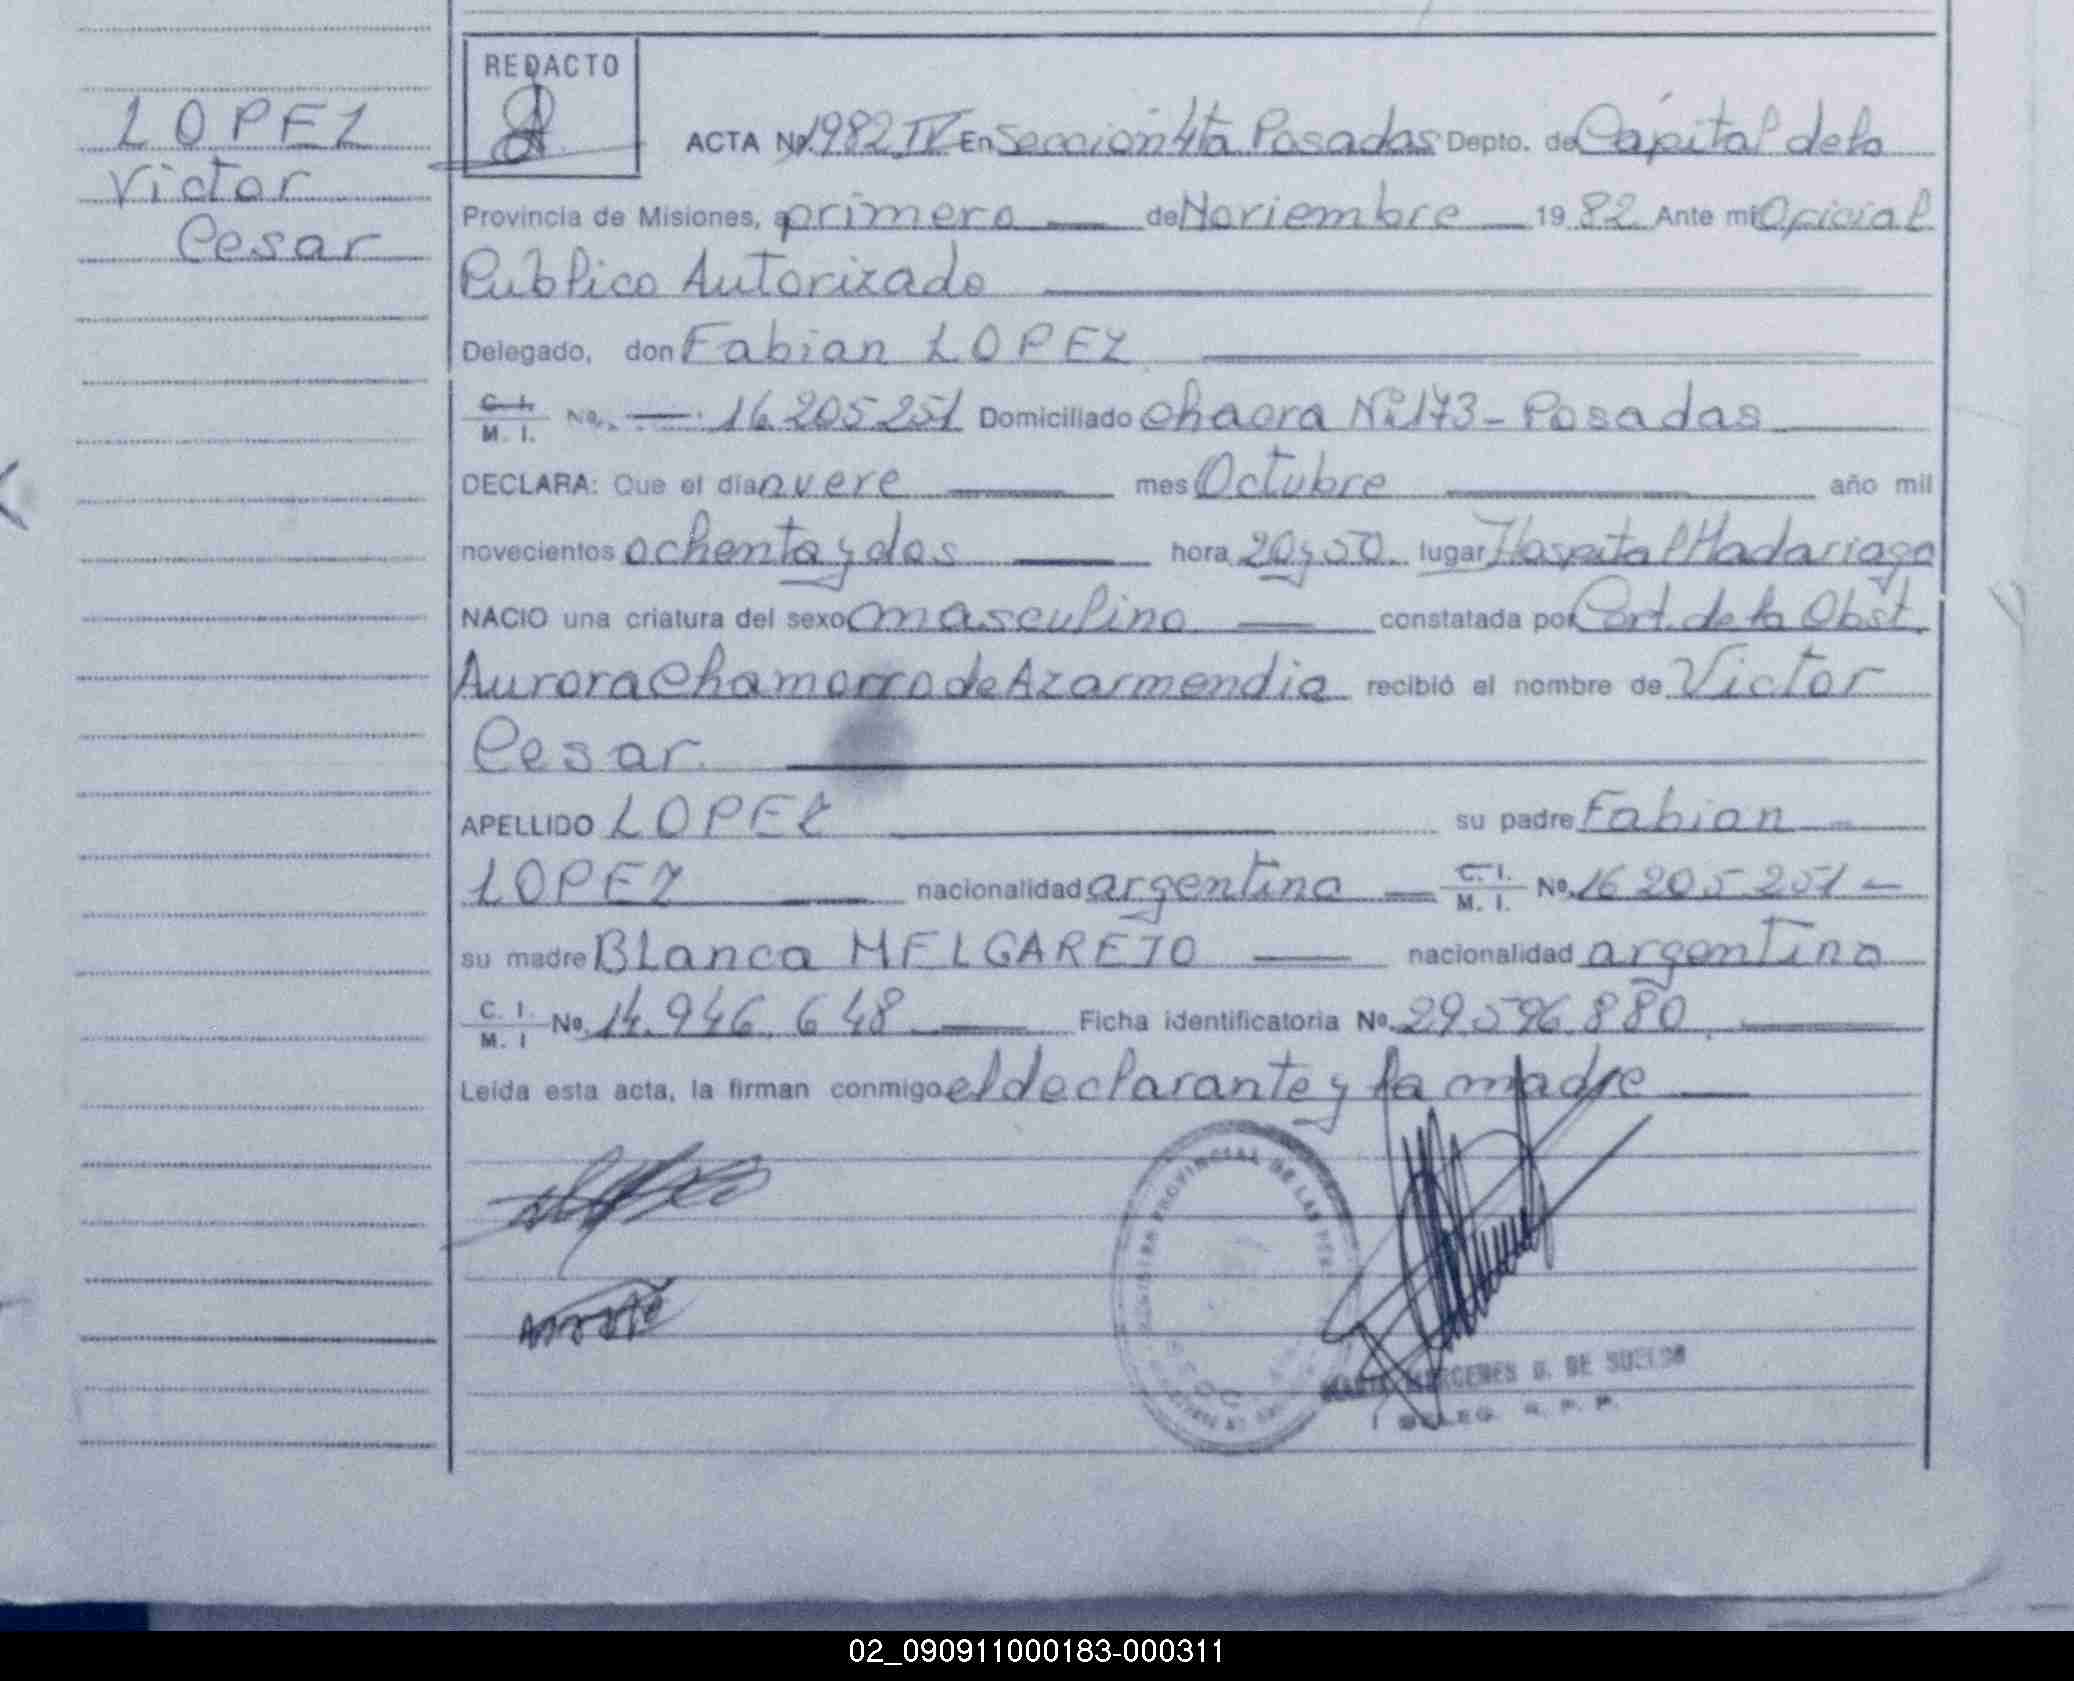 LOPEZ
Victor
Cesar
REDACTO
ACTA Nº 1982 IV En Sección 4ta Posadas Depto. de Capital de la
Provincia de Misiones, a primero de Noviembre 19 82 Ante mi Oficial
Publico Autorizado
Delegado, don Fabian LOPEZ
C. I. M. I. No. 16 205 251 Domiciliado Chacra Nº 173 - Posadas
DECLARA: Que el día nueve mes Octubre año mil
novecientos ochenta y dos hora 20 y 50 lugar Hospital Madariaga
NACIO una criatura del sexo masculino constatada por Cert. de la Obst.
Aurora Chamorro de Azarmendia recibió el nombre de Victor
Cesar
APELLIDO LOPEZ su padre Fabian
LOPEZ nacionalidad argentina C. I. M. I. Nº. 16 205 251 -
su madre BLanca MELGAREJO nacionalidad argentina
C. I. M. I Nº. 14.946.648 Ficha identificatoria Nº. 29.596.880
Leída esta acta, la firman conmigo el declarante y la madre
PROVINCIAL DE LAS PER
G. DE SUELDO
DELEG. R. P. P.
02_090911000183-000311